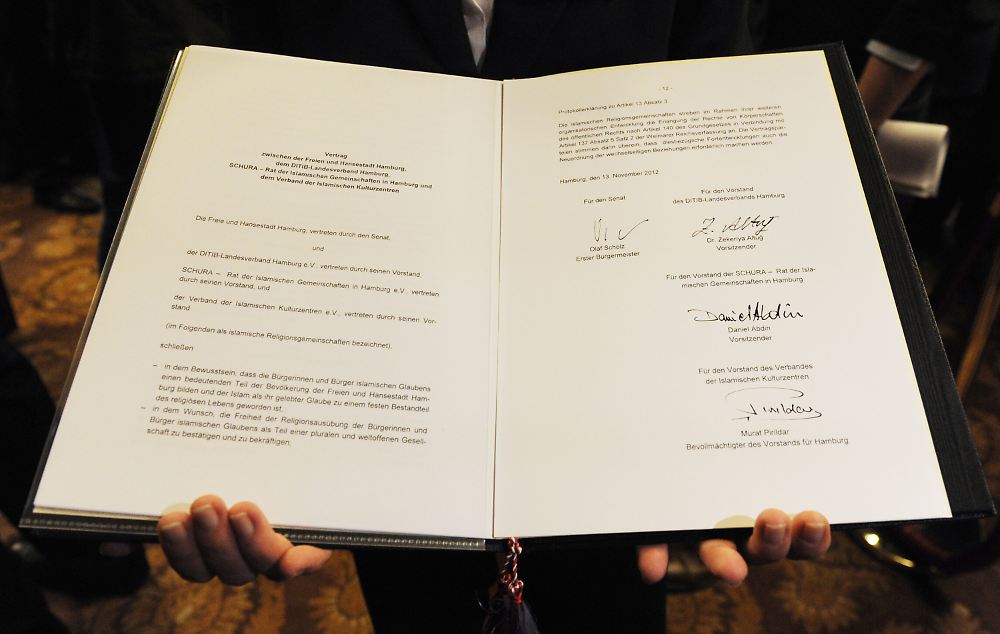 Vertrag
zwischen der Freien und Hansestadt Hamburg,
dem DITIB-Landesverband Hamburg,
SCHURA – Rat der Islamischen Gemeinschaften in Hamburg und
dem Verband der Islamischen Kulturzentren
Die Freie und Hansestadt Hamburg, vertreten durch den Senat,
und
der DITIB-Landesverband Hamburg e.V., vertreten durch seinen Vorstand,
SCHURA – Rat der Islamischen Gemeinschaften in Hamburg e.V., vertreten
durch seinen Vorstand, und
der Verband der Islamischen Kulturzentren e.V., vertreten durch seinen Vor-
stand
(im Folgenden als islamische Religionsgemeinschaften bezeichnet),
schließen
– in dem Bewusstsein, dass die Bürgerinnen und Bürger islamischen Glaubens
einen bedeutenden Teil der Bevölkerung der Freien und Hansestadt Ham-
burg bilden und der Islam als ihr gelebter Glaube zu einem festen Bestandteil
des religiösen Lebens geworden ist,
– in dem Wunsch, die Freiheit der Religionsausübung der Bürgerinnen und
Bürger islamischen Glaubens als Teil einer pluralen und weltoffenen Gesell-
schaft zu bestätigen und zu bekräftigen,
- 12 -
Protokollerklärung zu Artikel 13 Absatz 3
Die islamischen Religionsgemeinschaften streben im Rahmen ihrer weiteren
organisatorischen Entwicklung die Erlangung der Rechte von Körperschaften
des öffentlichen Rechts nach Artikel 140 des Grundgesetzes in Verbindung mit
Artikel 137 Absatz 5 Satz 2 der Weimarer Reichsverfassung an. Die Vertragspar-
teien stimmen darin überein, dass diesbezügliche Fortentwicklungen auch die
Neuordnung der wechselseitigen Beziehungen erforderlich machen werden.
Hamburg, den 13. November 2012
Für den Senat
Olaf Scholz
Erster Bürgermeister
Für den Vorstand
des DITIB-Landesverbands Hamburg
Z. Altuğ
Dr. Zekeriya Altuğ
Vorsitzender
Für den Vorstand der SCHURA – Rat der Isla-
mischen Gemeinschaften in Hamburg
Daniel Abdin
Daniel Abdin
Vorsitzender
Für den Vorstand des Verbandes
der Islamischen Kulturzentren
Murat Pirildar
Bevollmächtigter des Vorstands für Hamburg